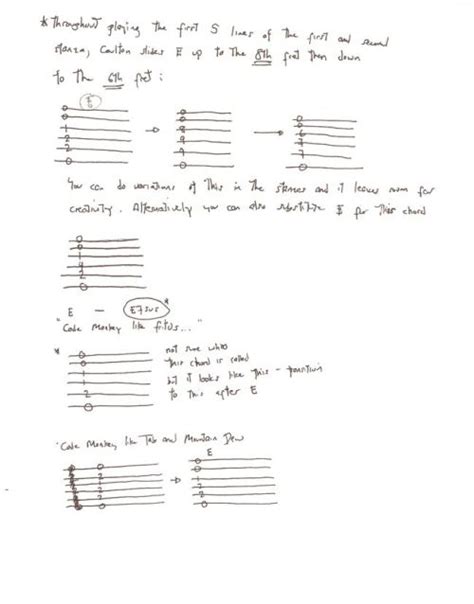 * Throughout playing the first 5 lines of the first and second
stanza, Coulton slides E up to the 8th fret then down
to the 6th fret :
E
0 0 0
0 0 0
1 8 6
2 9 7
2 9 7
0 0 0
You can do variations of this in the stanzas and it leaves room for
creativity. Alternatively you can also substitute E for this chord
0
0
1
4
2
0
E — E7sus*
"Code Monkey like fritos..."
* not sure what
this chord is called
but it looks like this - transition
to this after E
0
0
1
1
2
0
"Code Monkey like Tab and Mountain Dew
E
0 0
2 0
2 1
2 2
2 2
0 0